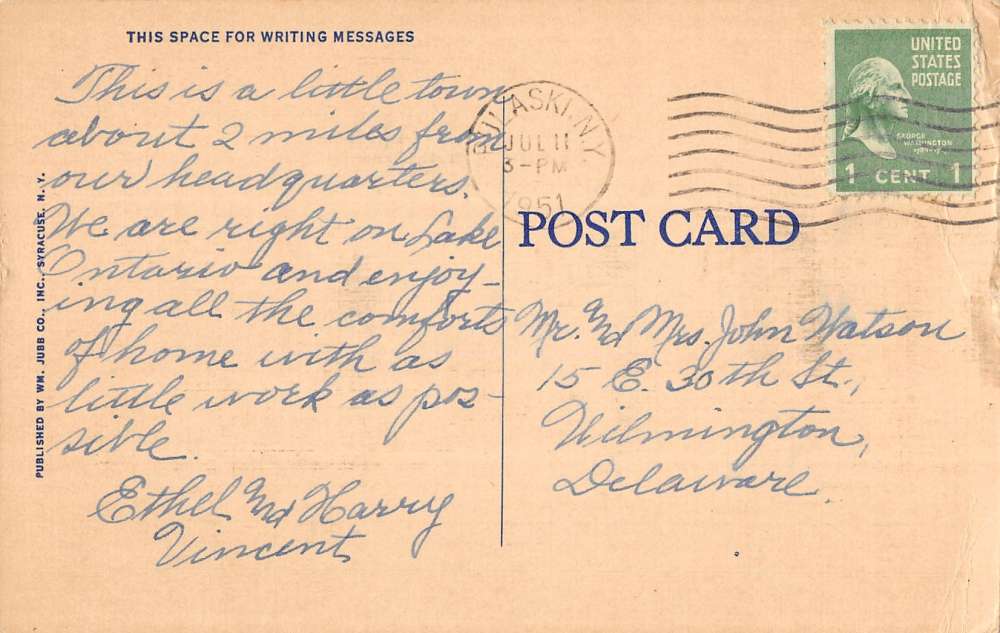 THIS SPACE FOR WRITING MESSAGES
This is a little town
about 2 miles from
our headquarters.
We are right on Lake
Ontario and enjoy-
ing all the comforts
of home with as
little work as pos-
sible.
Ethel and Harry
Vincent
PUBLISHED BY WM. JUBB CO., INC., SYRACUSE, N. Y.
PULASKI, N.Y.
JUL 11
3-PM
1951
UNITED
STATES
POSTAGE
GEORGE
WASHINGTON
1789-97
1 CENT 1
POST CARD
Mr. and Mrs. John Watson
15 E. 30th St.,
Wilmington,
Delaware.